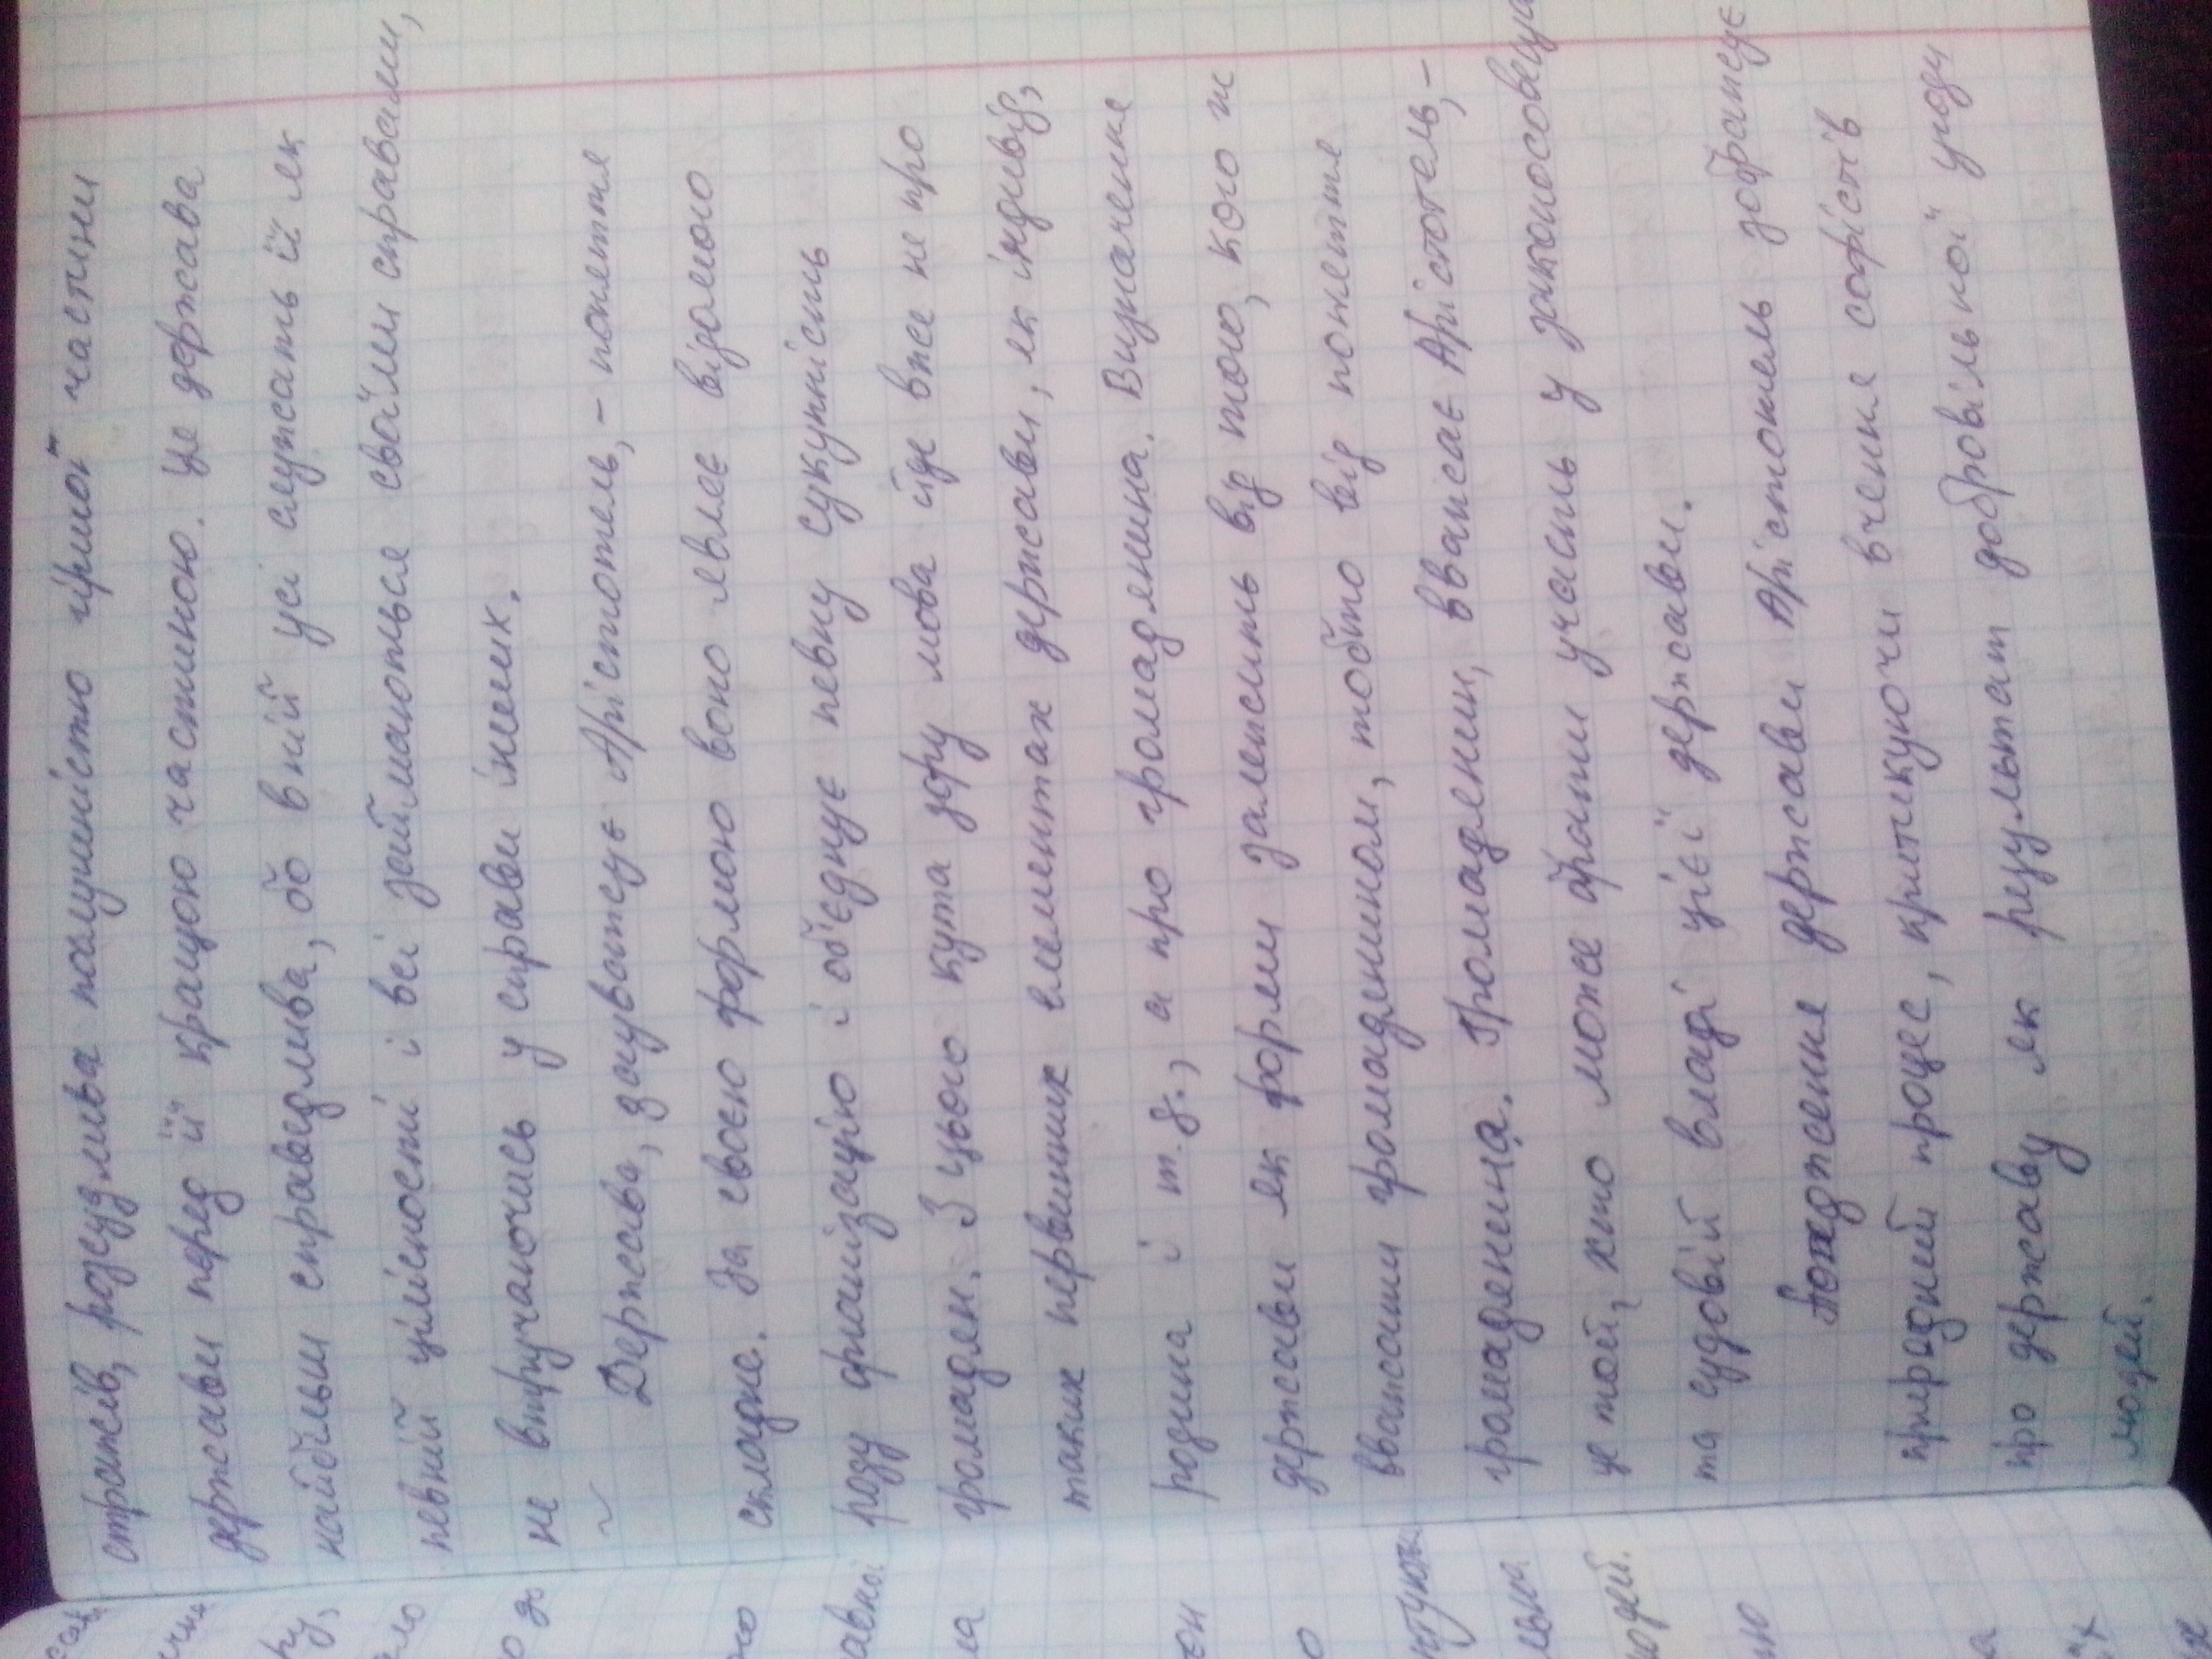 стражів, розсудлива послушністю гіршої частини
держави перед її кращою частиною. Це держава
найбільш справедлива, бо в ній усі служать їй як
певній цілісності і всі займаються своїми справами,
не втручаючись у справи інших.
Держава, зауважує Арістотель, – поняття
складне. За своєю формою воно являє відомого
роду організацію і об'єднує певну сукупність
громадян. З цього кута зору мова йде вже не про
таких первинних елементах держави, як індивід,
родина і т.д., а про громадянина. Визначення
держави як форми залежить від того, кого ж
вважати громадянином, тобто від поняття
громадянина. Громадянин, вважає Арістотель, –
це той, хто може брати участь у законосовеща
та судовій владі цієї держави.
держави Арістотель зображує
природний процес, критикуючи вчення софістів
про державу як результат добровільної угоди
людей.